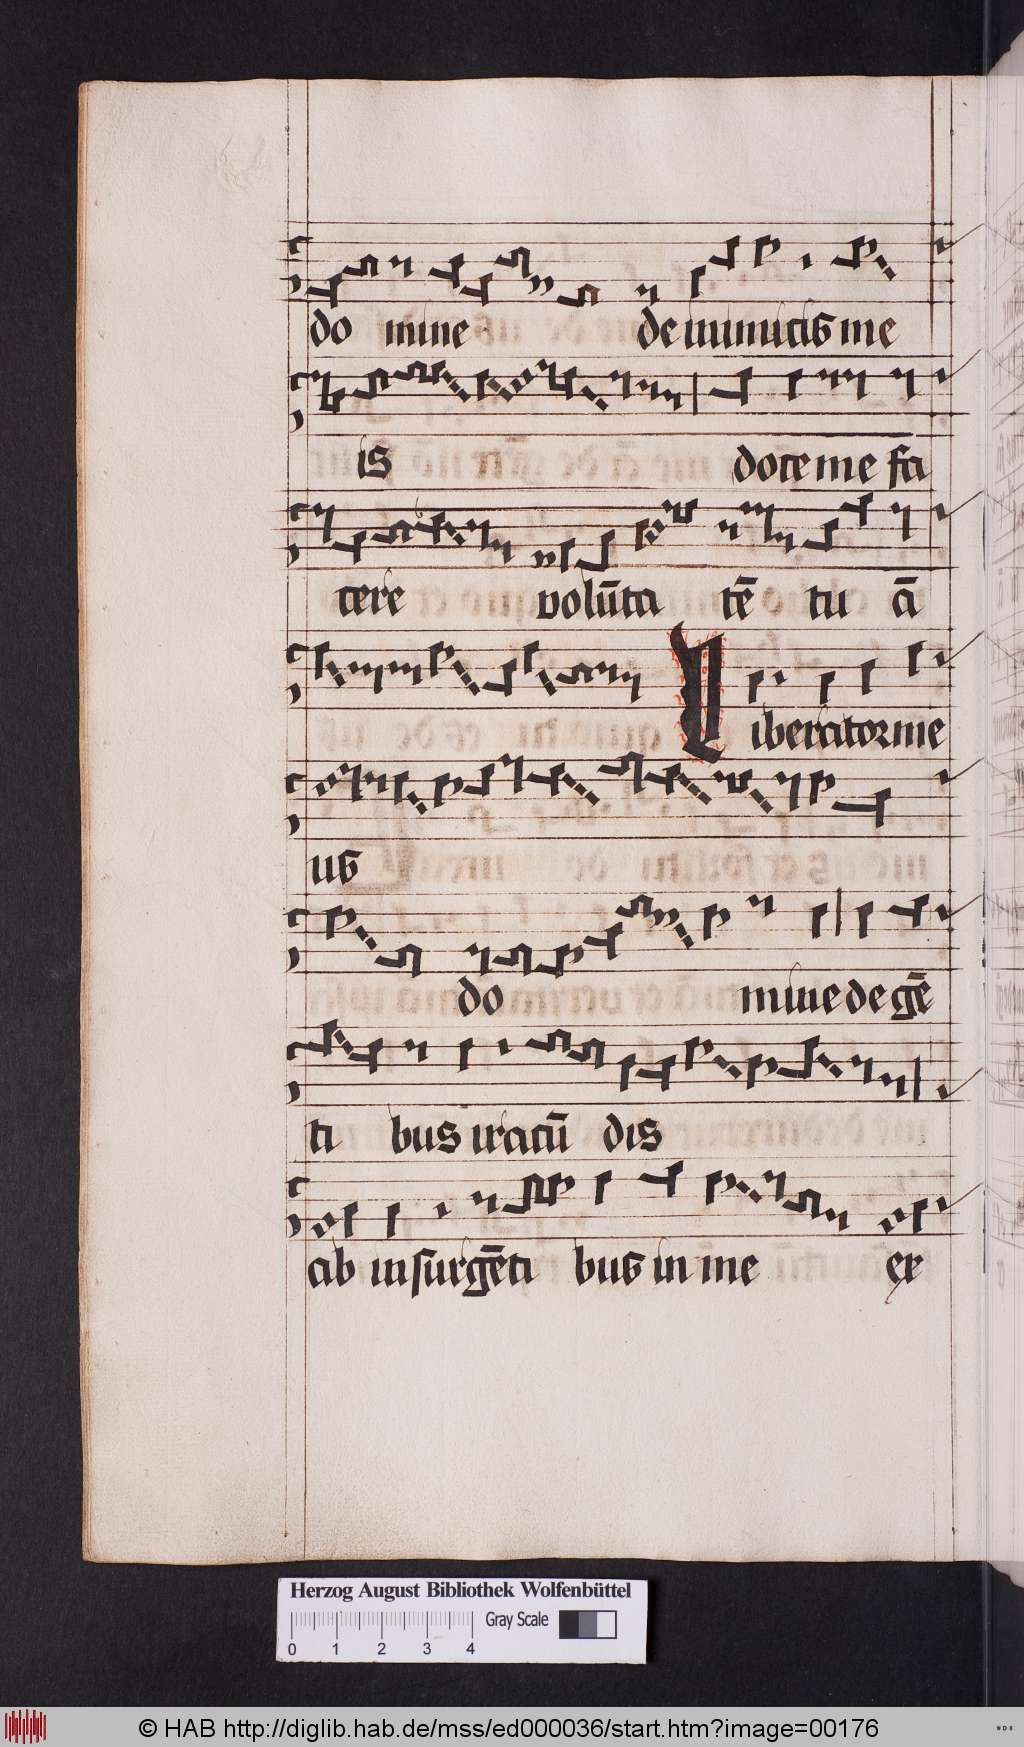 do mine de inimicis me
is doce me fa
cere volūta tē tu ā
Liberator me
us
do mine de gē
ti bus iracū dis
ab insurgēti bus in me ex
Herzog August Bibliothek Wolfenbüttel
Gray Scale
0 1 2 3 4
© HAB http://diglib.hab.de/mss/ed000036/start.htm?image=00176